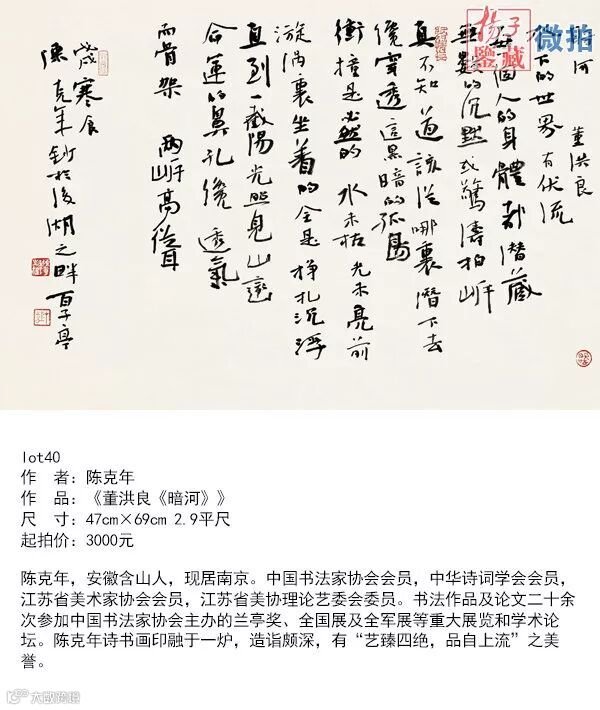 暗河
董洪良
下的世界 有伏流
每個人的身體 都潜藏
無數的沉默或驚濤拍岸
真不知道該從哪裏潛下去
儘穿透這黑暗的孤島
衝撞是必然的 水未枯 光未亮前
漩涡裏坐着的全是 掙扎沉浮
直到一截陽光照見山巒
命運的鼻孔儘透氣
而骨架 兩岸高聳
歲寒食
陳克年鈔於後湖之畔百子亭
扬子
鉴藏
微拍
lot40
作 者：陈克年
作 品：《董洪良《暗河》》
尺 寸：47cm×69cm 2.9平尺
起拍价：3000元
陈克年，安徽含山人，现居南京。中国书法家协会会员，中华诗词学会会员，
江苏省美术家协会会员，江苏省美协理论艺委会委员。书法作品及论文二十余
次参加中国书法家协会主办的兰亭奖、全国展及全军展等重大展览和学术论
坛。陈克年诗书画印融于一炉，造诣颇深，有“艺臻四绝，品自上流”之美
誉。
大数跨境